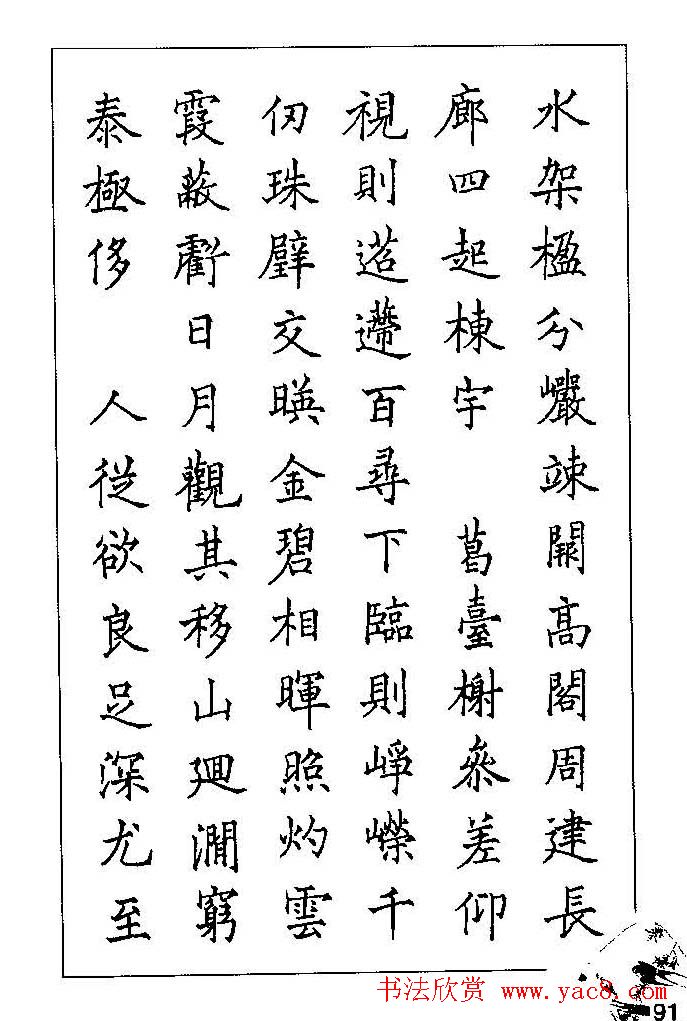 水架楹分巗竦闕高閣周建長
廊四起棟宇　葛臺榭叅差仰
視則迢遰百尋下臨則崢嶸千
仞珠璧交暎金碧相暉照灼雲
霞蔽虧日月觀其移山廻澗窮
泰極侈　人從欲良足深尤至
书法欣赏 www.yac8.com
91